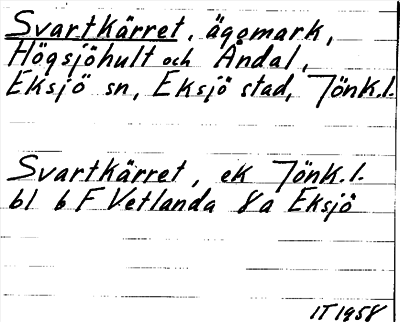 Svartkärret, äggmark,
Högsjöhult och Åndal,
Eksjö sn, Eksjö stad, Jönk.l.
Svartkärret, ek Jönk.l.
bl 6 F Vetlanda 8a Eksjö
IT 1958